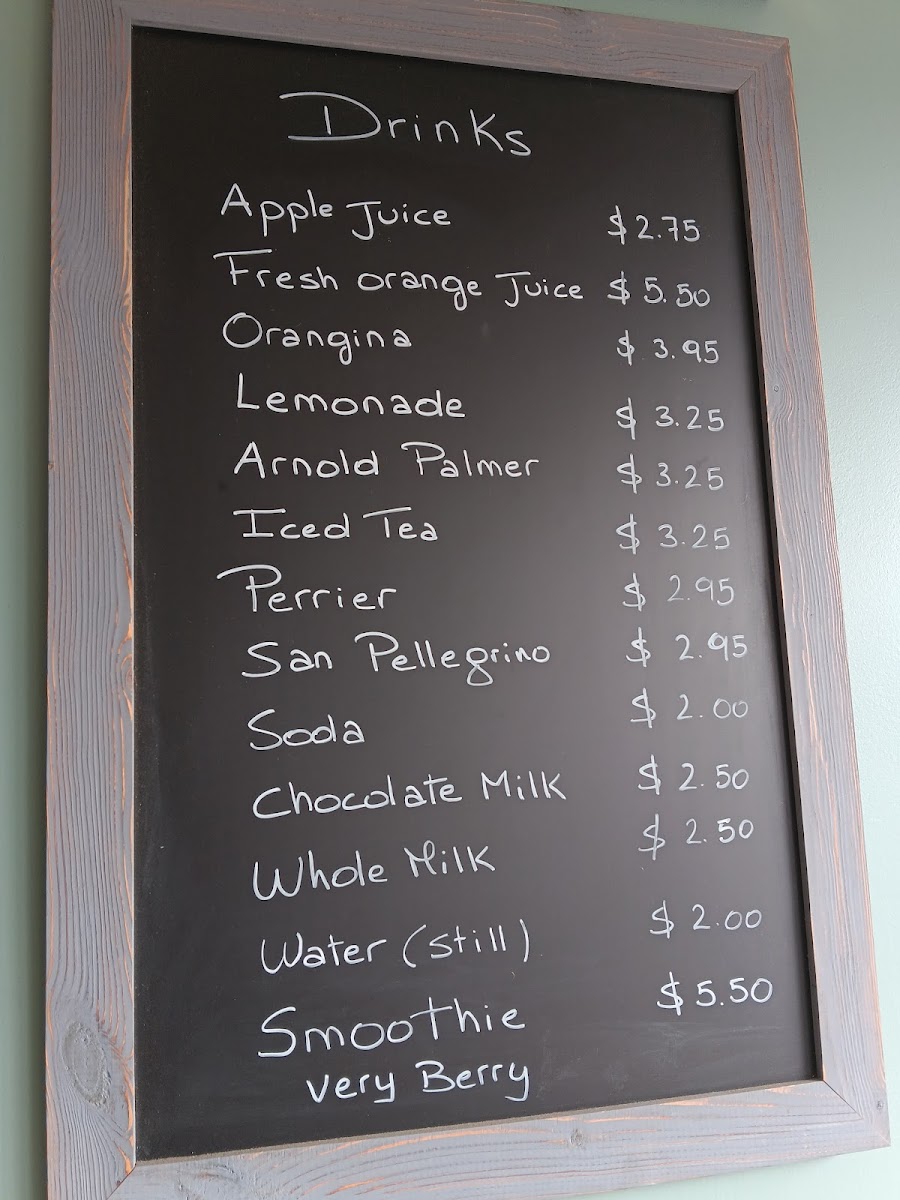 Drinks
Apple Juice $2.75
Fresh orange Juice $5.50
Orangina $3.95
Lemonade $3.25
Arnold Palmer $3.25
Iced Tea $3.25
Perrier $2.95
San Pellegrino $2.95
Soda $2.00
Chocolate Milk $2.50
Whole Milk $2.50
Water (still) $2.00
Smoothie $5.50
very Berry